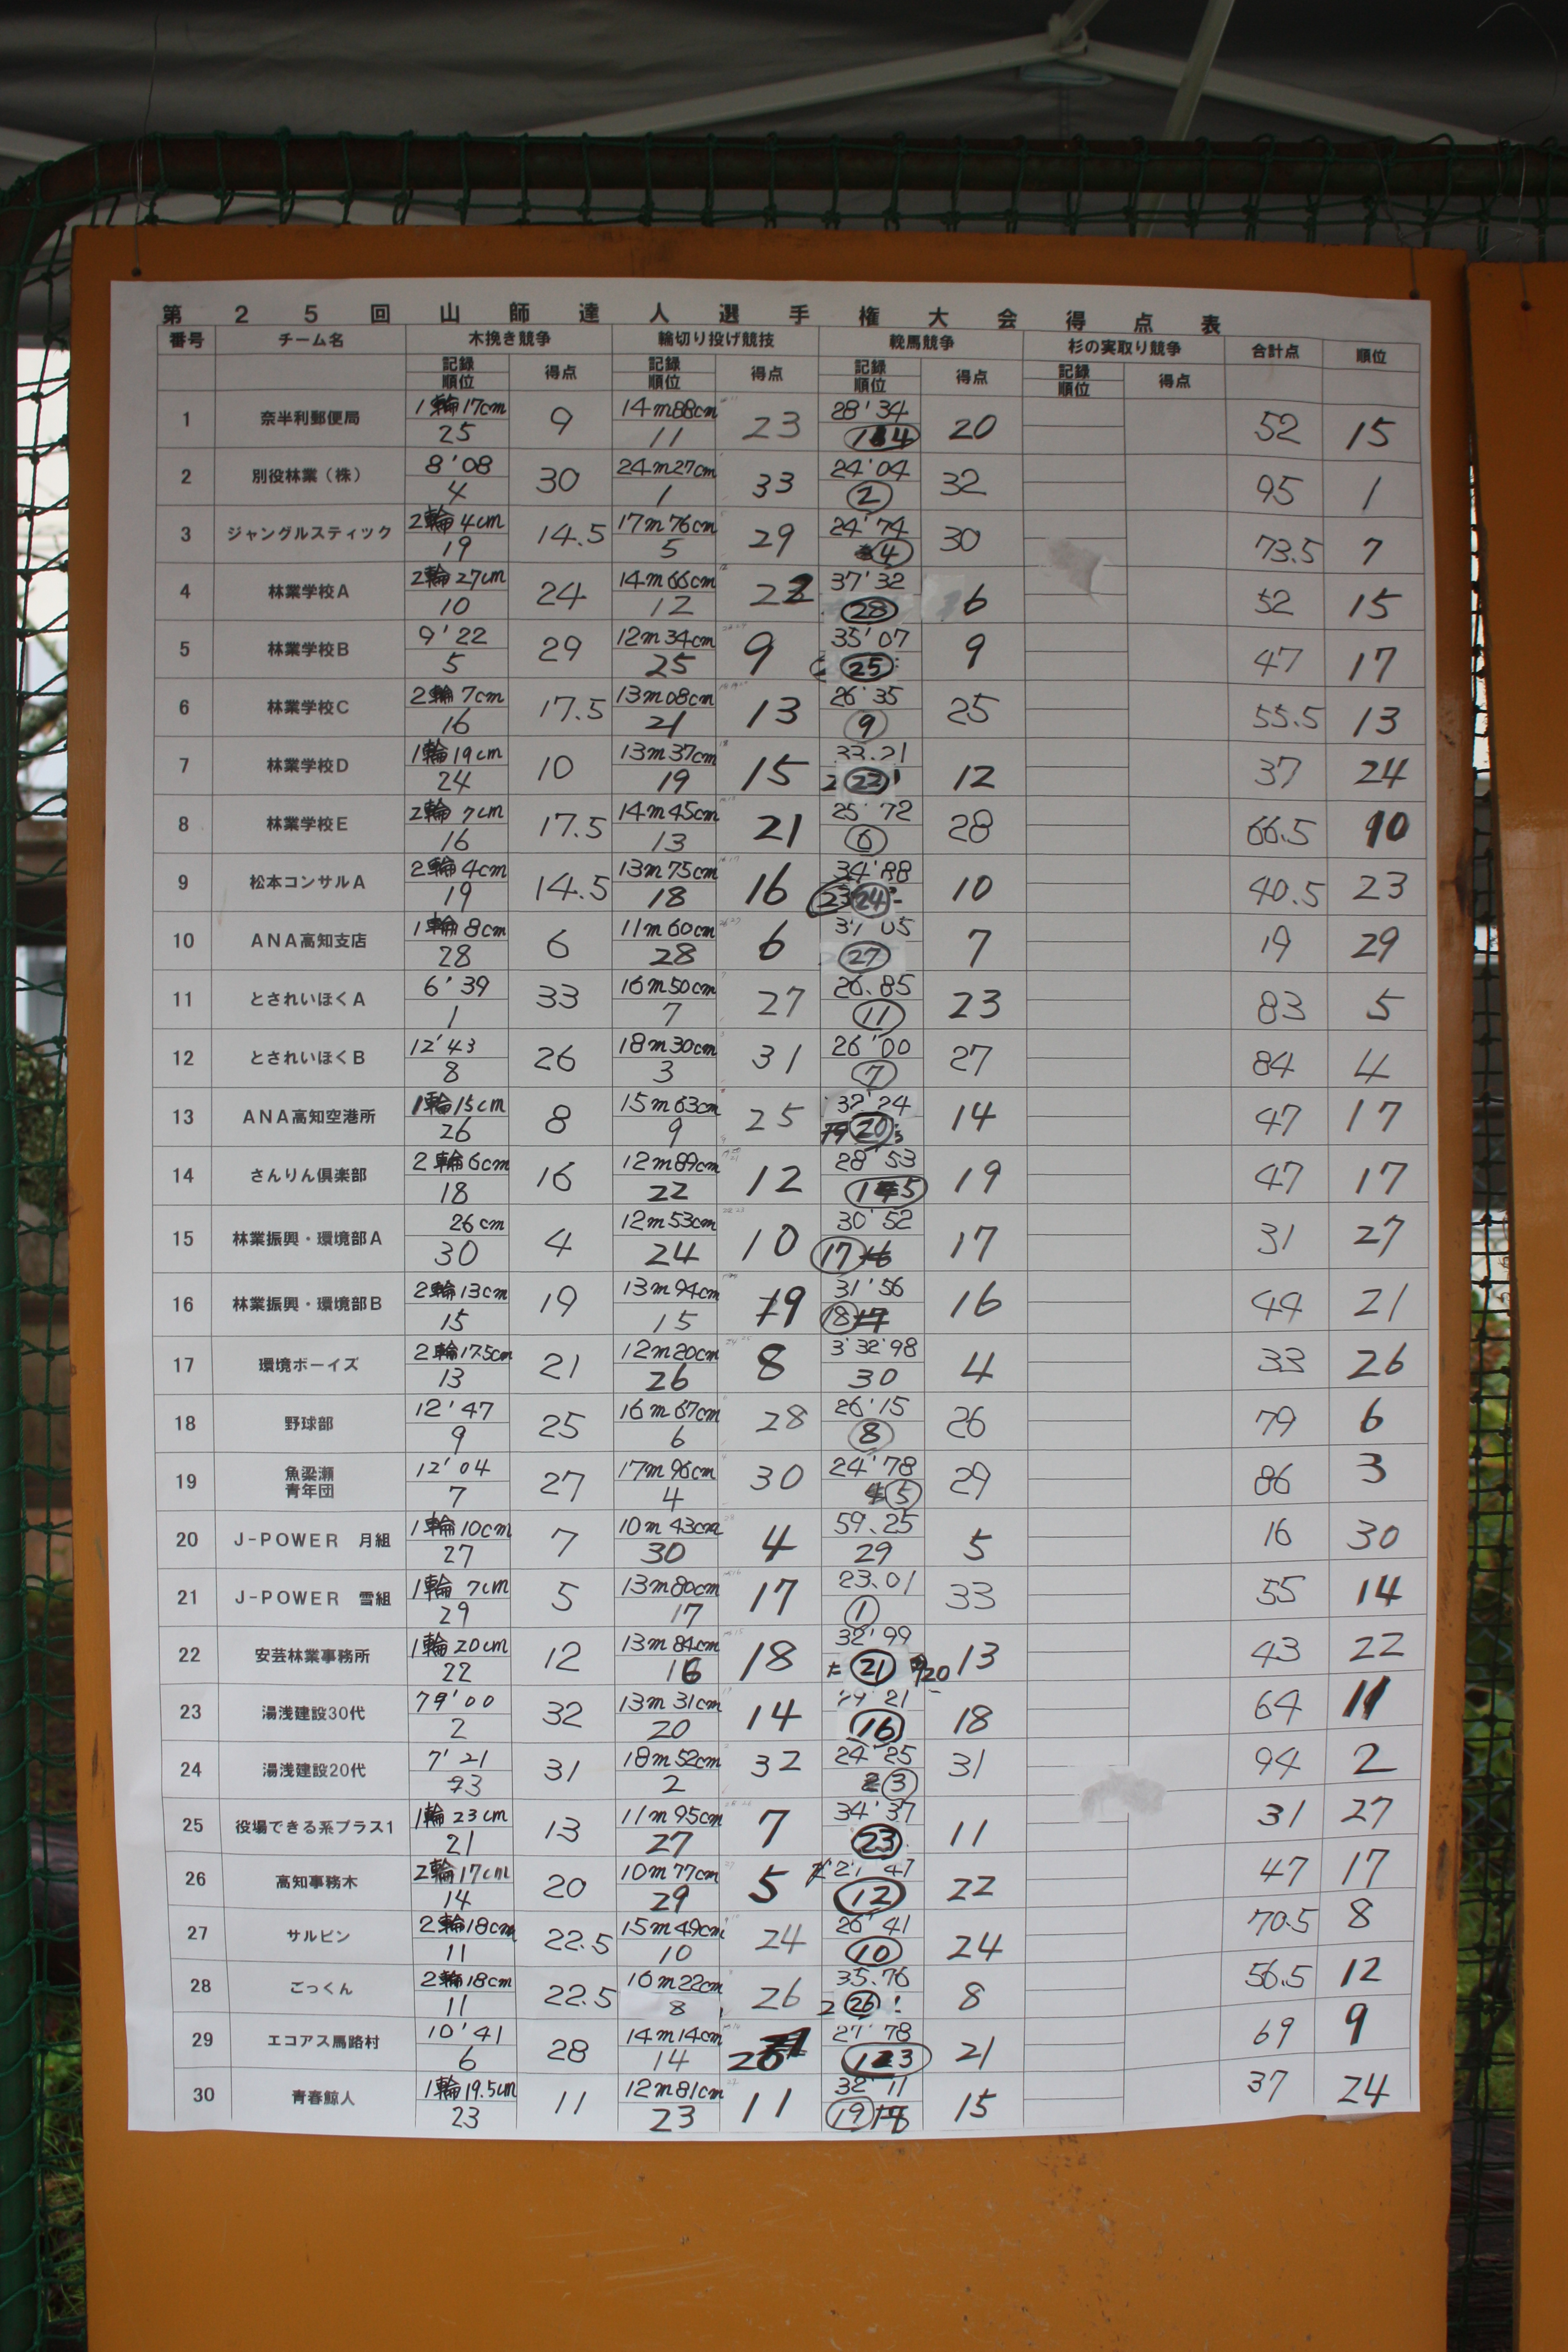 第25回山師達人選手権大会得点表
番号 チーム名 木挽き競争 輪切り投げ競技 鞍馬競争 杉の実取り競争 合計点 順位
記録 得点 記録 得点 記録 得点 記録 得点
順位 順位 順位 順位
1 奈半利郵便局 1輪17cm 9 14m88cm 23 28'34 20 52 15
25 11 14
2 別役林業(株) 8'08 30 24m27cm 33 24'04 32 95 1
4 1 2
3 ジャングルスティック 2輪4cm 14.5 17m76cm 29 24'74 30 73.5 7
19 5 4
4 林業学校A 2輪27cm 24 14m66cm 22 37'32 6 52 15
10 12 28
5 林業学校B 9'22 29 12m34cm 9 35'07 9 47 17
5 25 25
6 林業学校C 2輪7cm 17.5 13m08cm 13 26'35 25 55.5 13
16 21 9
7 林業学校D 1輪19cm 10 13m37cm 15 33.21 12 37 24
24 19 22
8 林業学校E 2輪7cm 17.5 14m45cm 21 25'72 28 66.5 10
16 13 6
9 松本コンサルA 2輪4cm 14.5 13m75cm 16 34'88 10 40.5 23
19 18 24
10 ANA高知支店 1輪8cm 6 11m60cm 6 37'05 7 19 29
28 28 27
11 とされいほくA 6'39 33 16m50cm 27 26.85 23 83 5
1 7 11
12 とされいほくB 12'43 26 18m30cm 31 26'00 27 84 4
8 3 7
13 ANA高知空港所 1輪15cm 8 15m63cm 25 32'24 14 47 17
26 9 20
14 さんりん倶楽部 2輪6cm 16 12m89cm 12 28'53 19 47 17
18 22 15
15 林業振興・環境部A 26cm 4 12m53cm 10 30'52 17 31 27
30 24 17
16 林業振興・環境部B 2輪13cm 19 13m94cm 19 31'56 16 44 21
15 15 18
17 環境ボーイズ 2輪17.5cm 21 12m20cm 8 3'32'98 4 33 26
13 26 30
18 野球部 12'47 25 16m67cm 28 26'15 26 79 6
9 6 8
19 魚梁瀬 12'04 27 17m96cm 30 24'78 29 86 3
青年団 7 4 5
20 J-POWER 月組 1輪10cm 7 10m43cm 4 59.25 5 16 30
27 30 29
21 J-POWER 雪組 1輪7cm 5 13m80cm 17 23.01 33 55 14
29 17 1
22 安芸林業事務所 1輪20cm 12 13m84cm 18 32'99 13 43 22
22 16 21
23 湯浅建設30代 79'00 32 13m31cm 14 29'21 18 64 11
2 20 16
24 湯浅建設20代 7'21 31 18m52cm 32 24'25 31 94 2
3 2 3
25 役場できる系プラス1 1輪23cm 13 11m95cm 7 34'37 11 31 27
21 27 23
26 高知事務木 2輪17cm 20 10m77cm 5 27'47 22 47 17
14 29 12
27 サルビン 2輪18cm 22.5 15m49cm 24 26'41 24 70.5 8
11 10 10
28 ごっくん 2輪18cm 22.5 16m22cm 26 35.76 8 56.5 12
11 8 26
29 エコアス馬路村 10'41 28 14m14cm 20 27'78 21 69 9
6 14 13
30 青春鯨人 1輪19.5cm 11 12m81cm 11 32'11 15 37 24
23 23 19